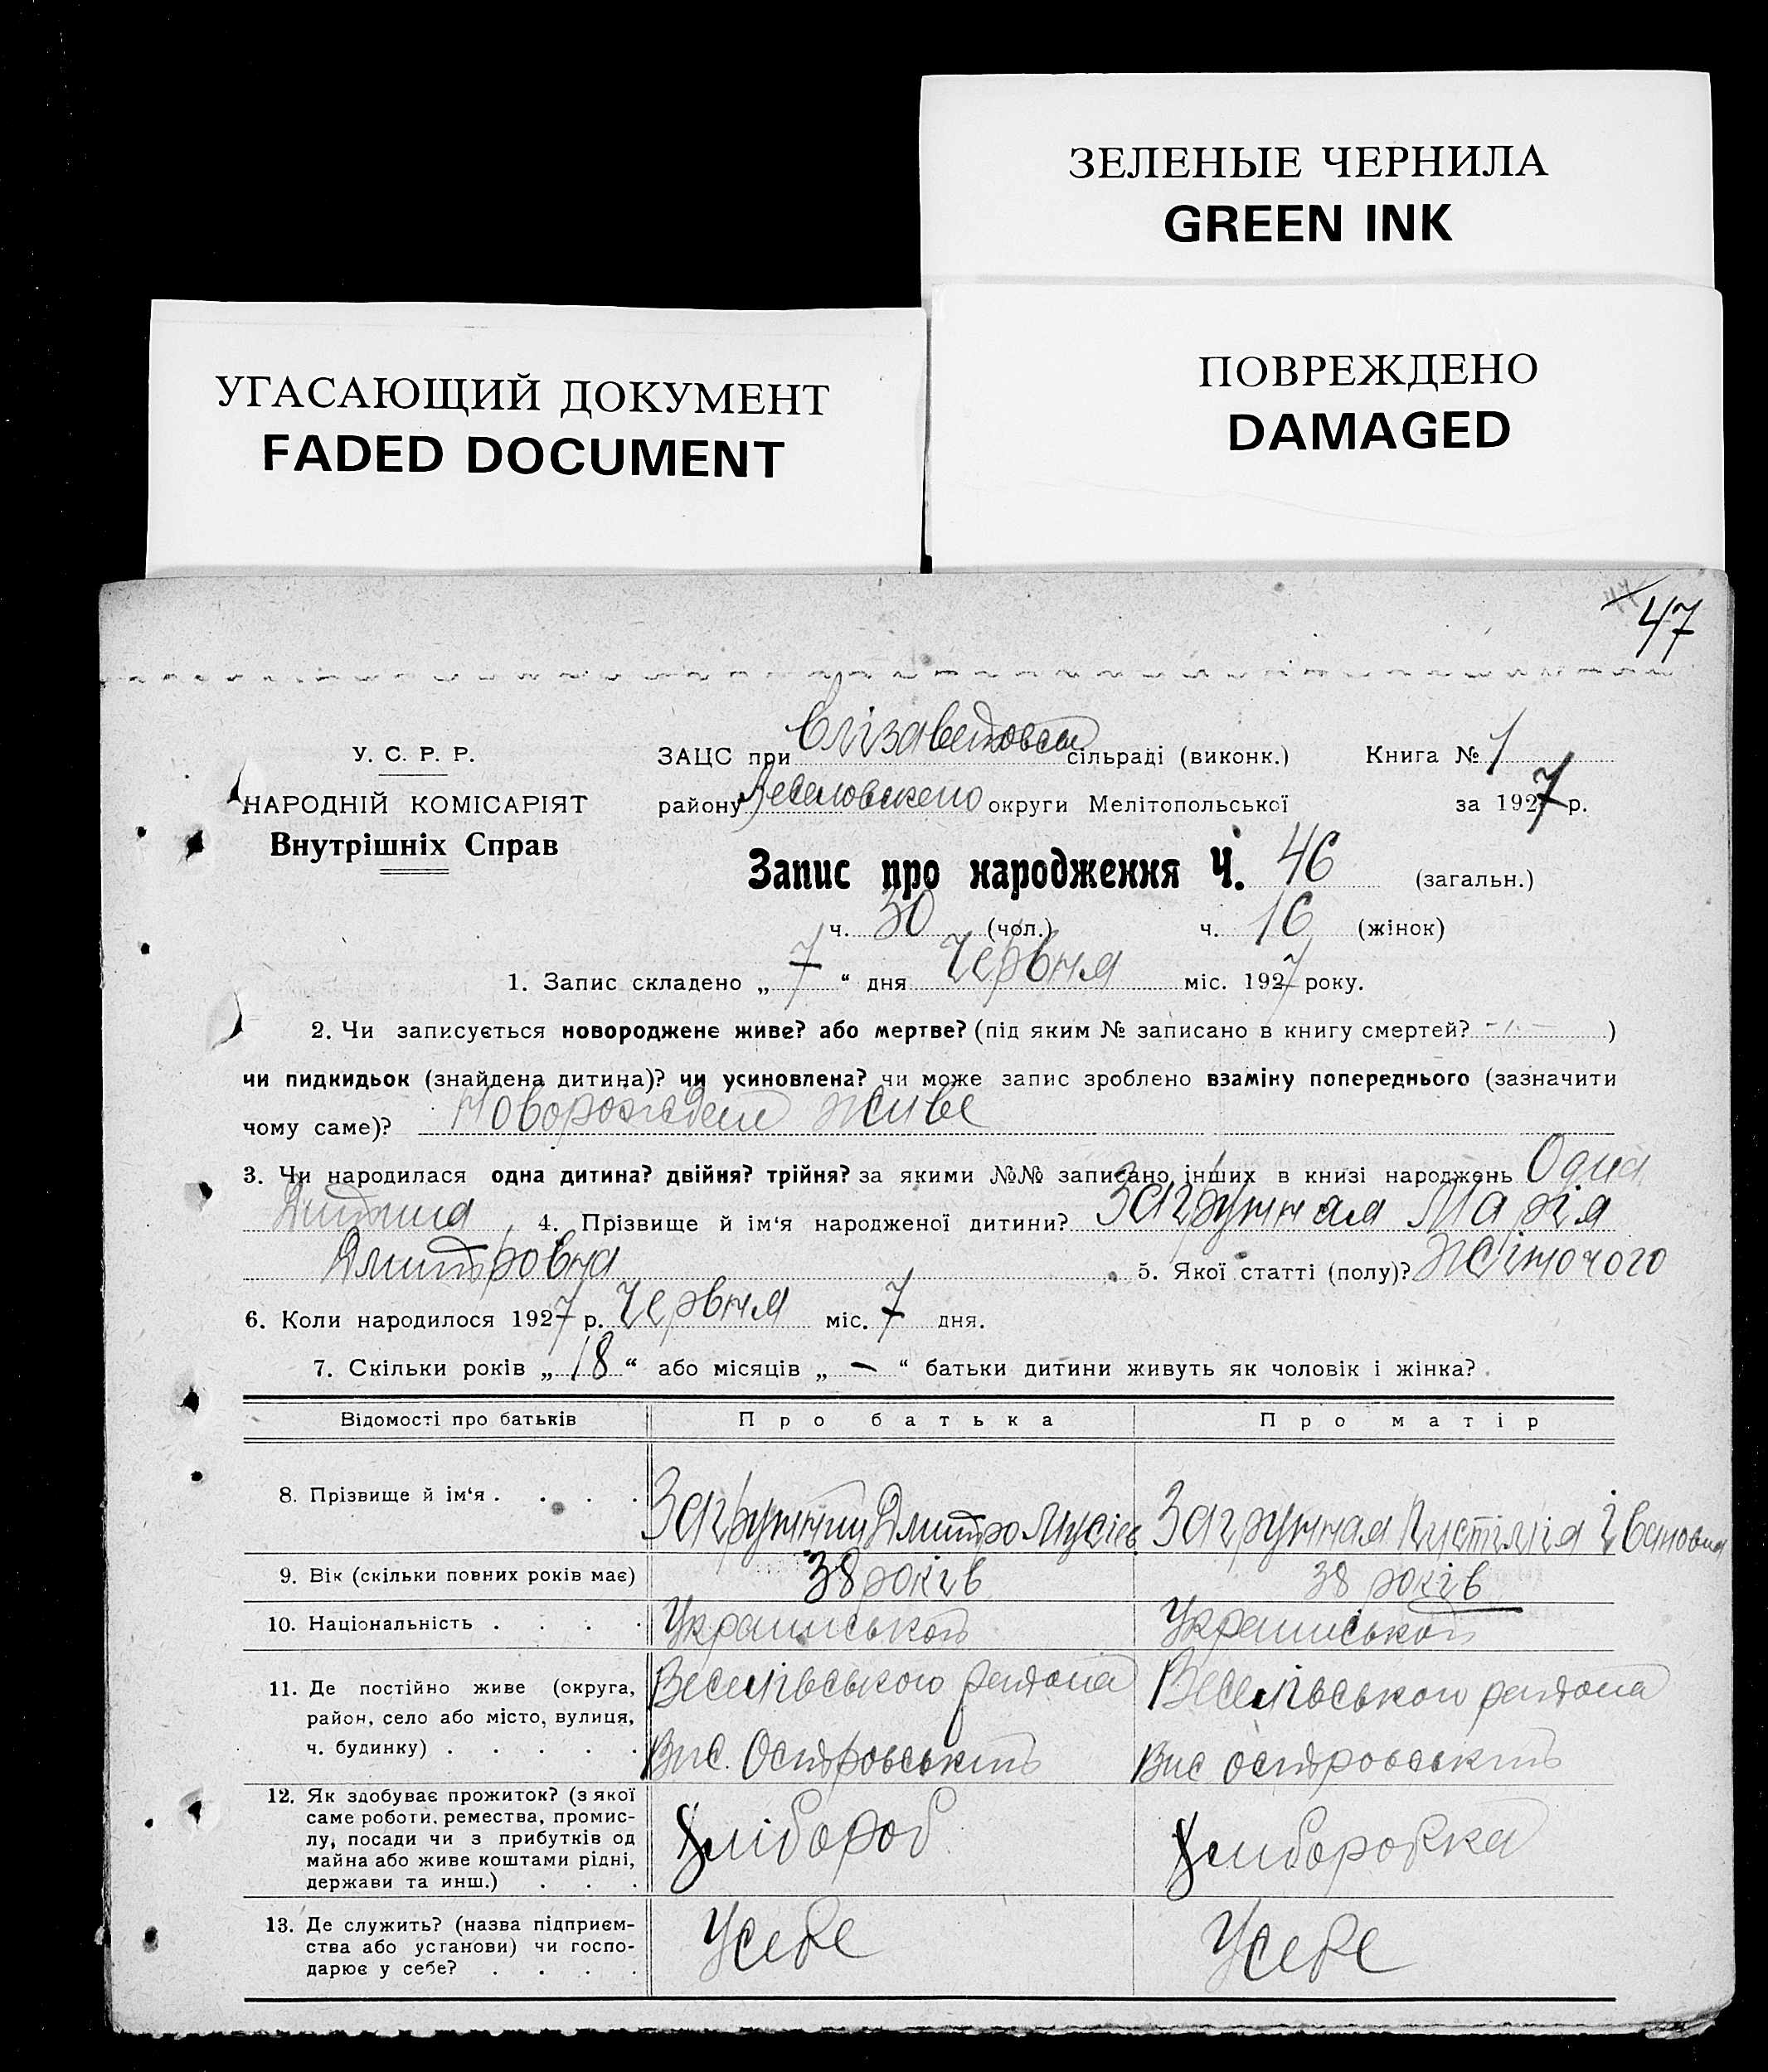 ЗЕЛЕНЫЕ ЧЕРНИЛА
GREEN INK
УГАСАЮЩИЙ ДОКУМЕНТ
FADED DOCUMENT
ПОВРЕЖДЕНО
DAMAGED
47
У. С. Р. Р.
НАРОДНІЙ КОМІСАРІЯТ
Внутрішніх Справ
ЗАЦС при Єлізаветовськ сільраді (виконк.) Книга № 1
району Веселовского округи Мелітопольської за 1927 р.
Запис про народження Ч. 46 (загальн.)
ч. 30 (чол.) ч. 16 (жінок)
1. Запис складено „ 7 “ дня Червня міс. 1927 року.
2. Чи записується новороджене живе? або мертве? (під яким № записано в книгу смертей? - - )
чи пидкидьок (знайдена дитина)? чи усиновлена? чи може запис зроблено взаміну попереднього (зазначити
чому саме)? Новорожден живе
3. Чи народилася одна дитина? двійня? трійня? за якими №№ записано інших в книзі народжень Одна
Дитина 4. Прізвище й ім‘я народженої дитини? Загружная Марія
Дмитровна 5. Якої статті (полу)? жіночого
6. Коли народилося 1927 р. Червня міс. 7 дня.
7. Скільки років „ 18 “ або місяців „ — “ батьки дитини живуть як чоловік і жінка?
Відомості про батьків Про батька Про матір
8. Прізвище й ім‘я . . . . Дмитро Мусіев Івановна
9. Вік (скільки повних років має) 38 років 38 років
10. Національність . . . . Украінськой Украінськой
11. Де постійно живе (округа, Веселівського района Веселівського района
район, село або місто, вулиця,
ч. будинку) . . . . . Вис. Островський Вис Островський
12. Як здобуває прожиток? (з якої
саме роботи, ремества, промис-
лу, посади чи з прибутків од Хлібороб Хлиборобка
майна або живе коштами рідні,
держави та инш.) . . .
13. Де служить? (назва підприєм-
ства або установи) чи госпо- Усебе Усебе
дарює у себе? . . . .